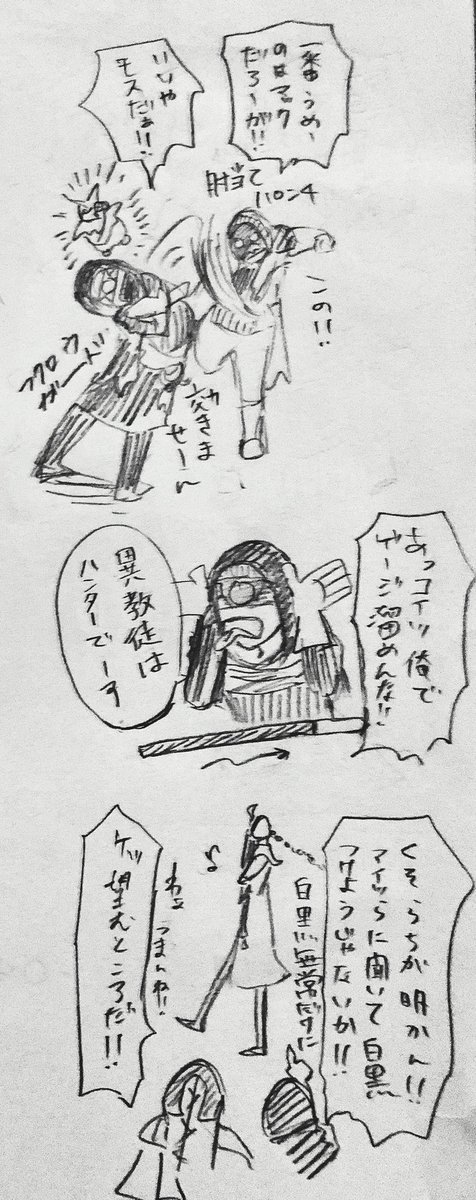 一番うめー
のはマック
だろーが!!
いいや
モスだぁ!!
肘当て
ハロン4
この!!
フクロウ
ガード
効きま
せーん
あっコイツ俺で
ゲージ溜めんな!!
異教徒は
ハンターでーす
くそうちが明かん!!
アイツらに聞いて白黒
つけようじゃないか!!
白黒無常だけに
♪
ねぇつまんね!!
ケッ望むところだ!!